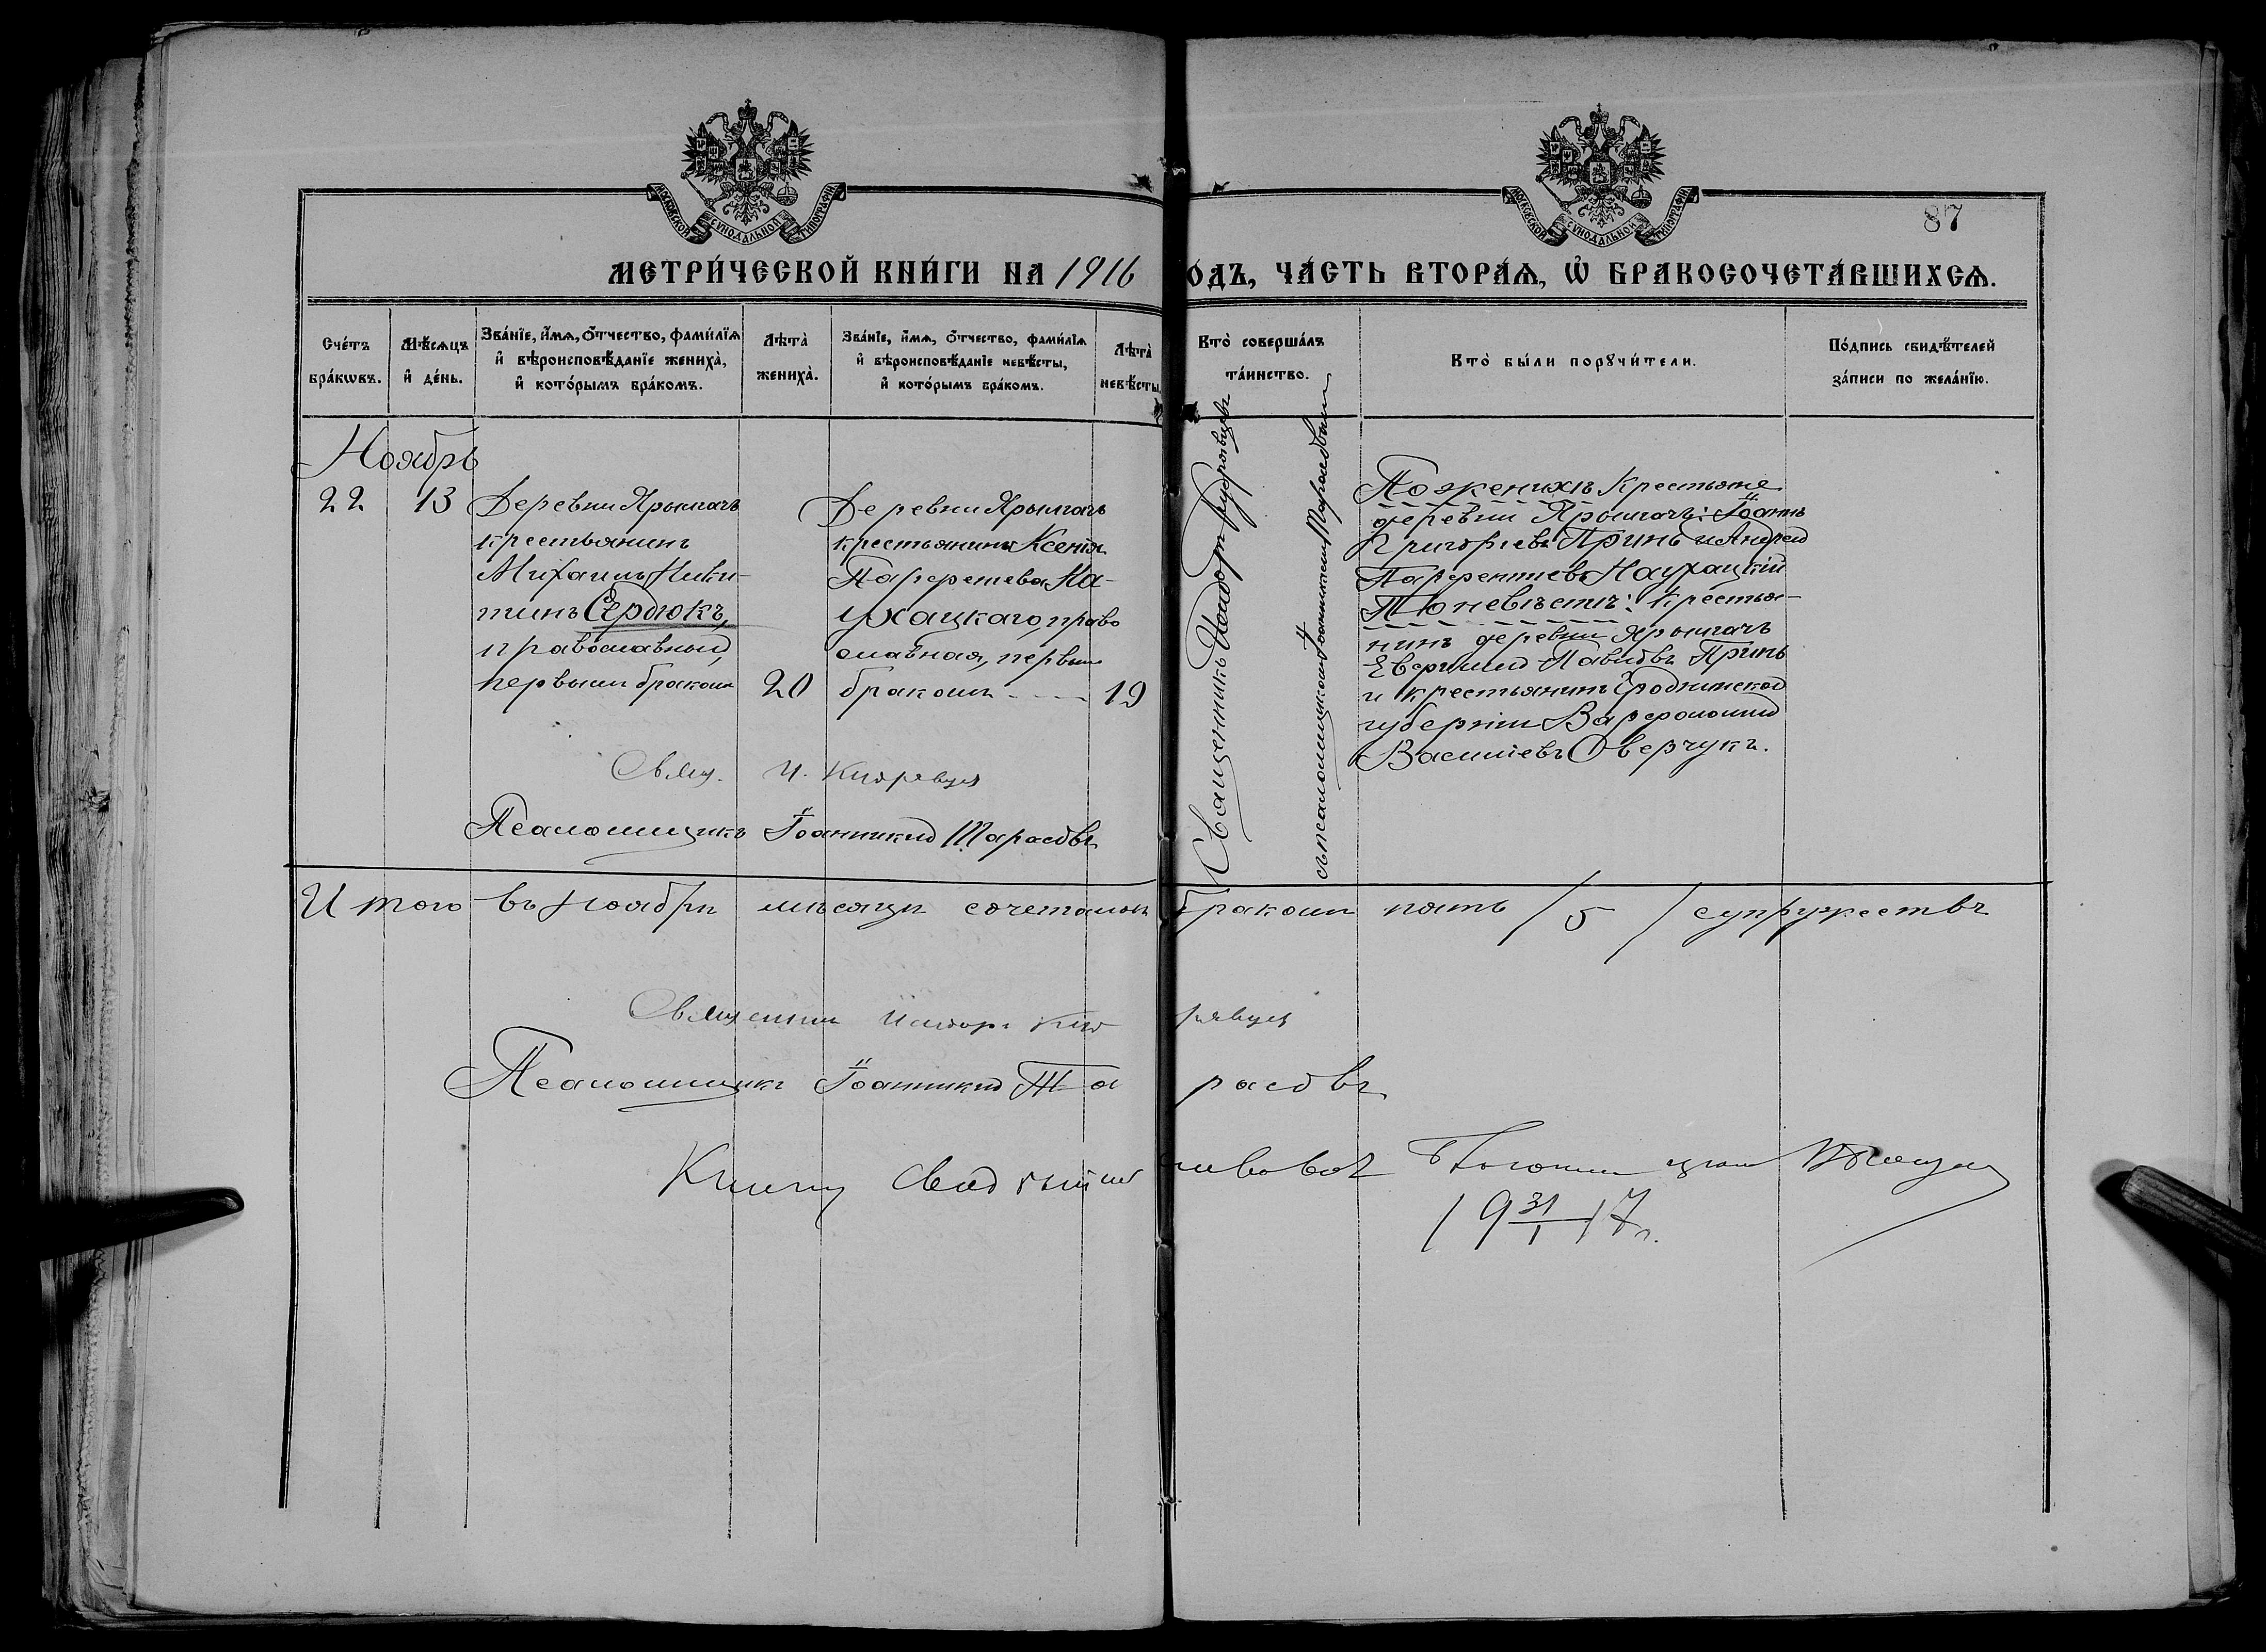 МОСКОВСКОЙ СѴНОДАЛЬНОЙ ТИПОГРАФІИ
МОСКОВСКОЙ СѴНОДАЛЬНОЙ ТИПОГРАФІИ
87
МЕТРИ́ЧЕСКОЙ КНИ́ГИ НА 1916
ОДЪ, ЧА́СТЬ ВТОРА́Ѧ, Ѽ БРАКОСОЧЕТА́ВШИХСѦ.
Сче́тъ
бра́кѡвъ.
Мѣ́сѧцъ
и҆ де́нь.
Зва́нїе, и҆́мѧ, ѻ҆́тчество, фами́лїѧ
и҆ вѣроисповѣ́данїе жениха̀,
и҆ кото́рымъ бра́комъ.
Лѣта̀
жениха̀.
Зва́нїе, и҆́мѧ, ѻ҆́тчество, фами́лїѧ
и҆ вѣроисповѣ́данїе невѣ́сты,
и҆ кото́рымъ бра́комъ.
Лѣта̀
невѣ́сты
Кто̀ соверша́лъ
та́инство.
Кто̀ бы́ли порꙋчи́тели.
По́дпись свидѣ́телей
за́писи по жела́нїю.
Ноябрь
22
13
Деревни Ярымачъ
крестьянинъ
Михаилъ Ники-
тинъ Сердюкъ,
православный,
первымъ бракомъ
20
Деревни Ярымачъ
крестьянина Ксенія
Парфентева На-
ухацкаго, право
славная, первым
бракомъ
19
Священникъ Исидоръ
съ псаломщикомъ Іоанникіемъ Тарасовым
По женихѣ Крестьяне
деревни Ярымачъ: Іоаннъ
Григорьевъ Принь и Андрей
Парфентіевъ Наухацкій
По невѣстѣ: крестья-
нинъ деревни Ярымачъ
Евфимий Павловъ Принь
и крестьянинъ Гродненской
губерніи Варфоломей
Васильевъ Оверчукъ.
Свящ. И.
Псаломщикъ Іоанникій Тарасовъ
Итого въ Ноябрѣ мѣсяцѣ сочеталось бракомъ пять /5/ супружествъ
Священник Исидоръ
Псаломщикъ Іоанникій Тарасовъ
Книгу
19 31/1 17 г.